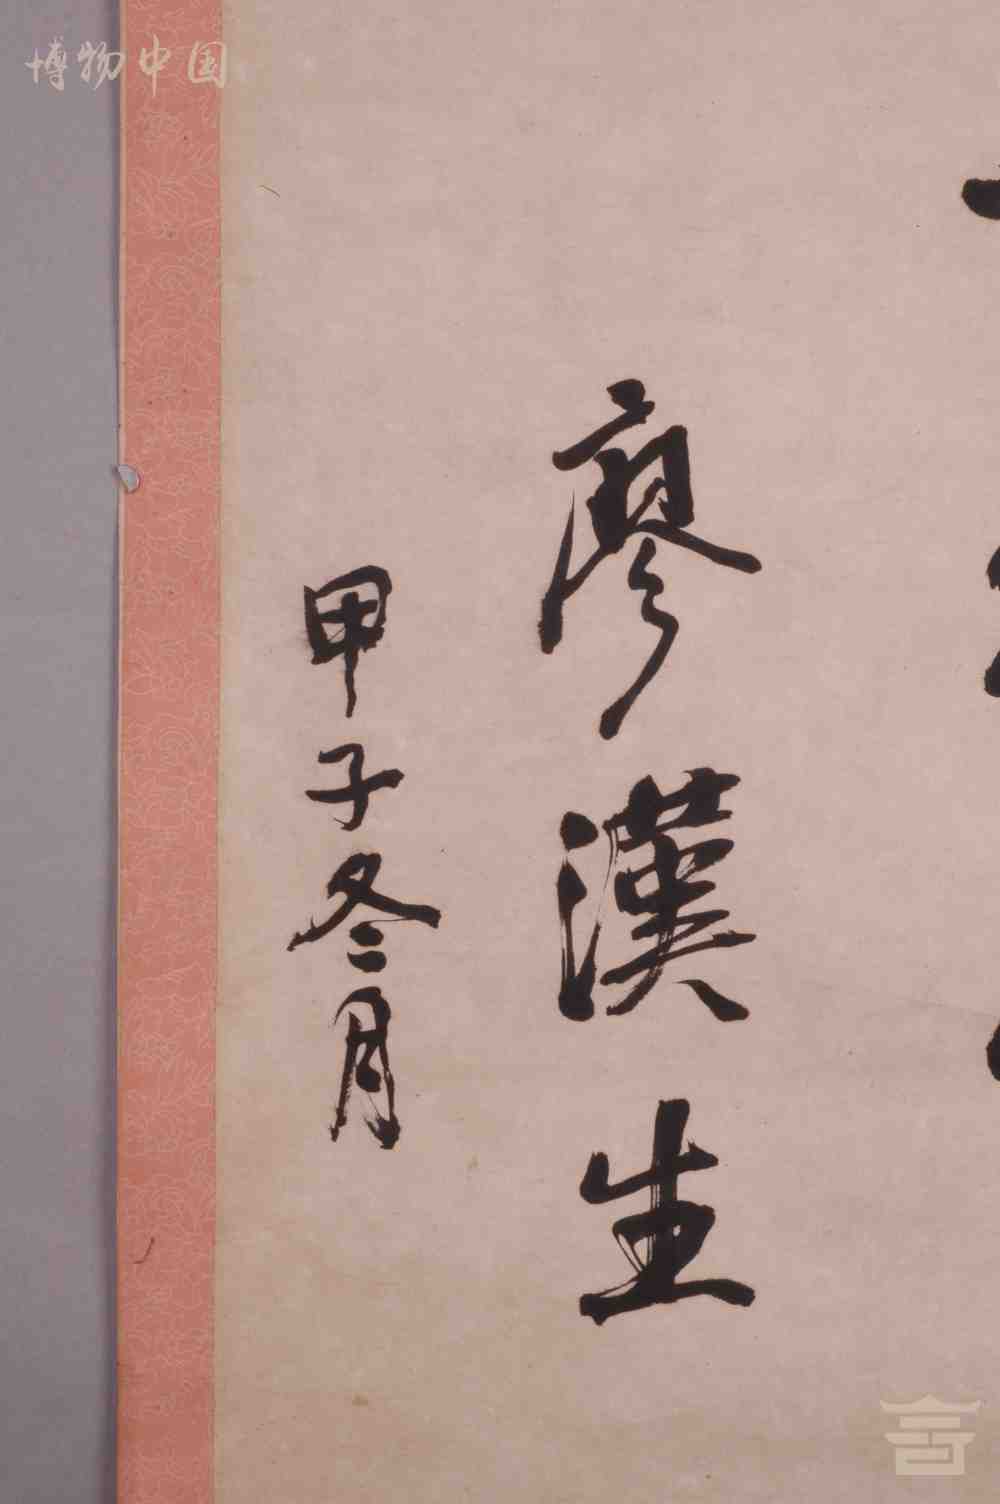 博物中国
廖漢生
甲子冬月